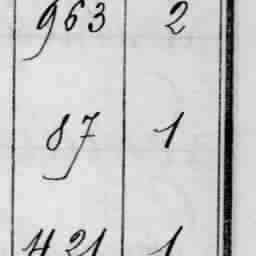 963 2
87 1
421 1